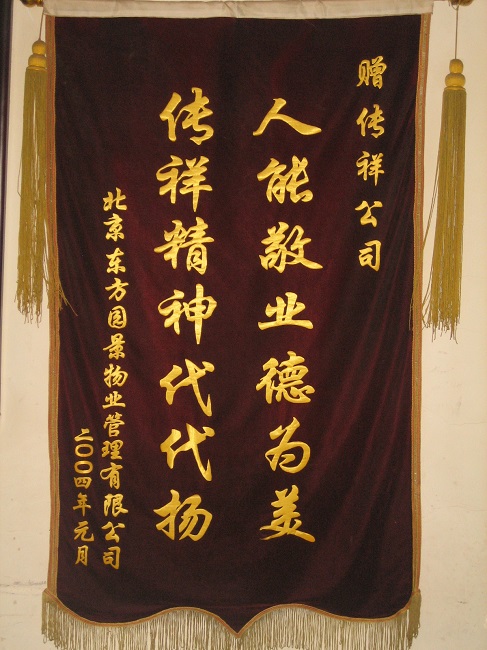 赠传祥公司
人能敬业德为美
传祥精神代代扬
北京东方园景物业管理有限公司
二〇〇四年元月